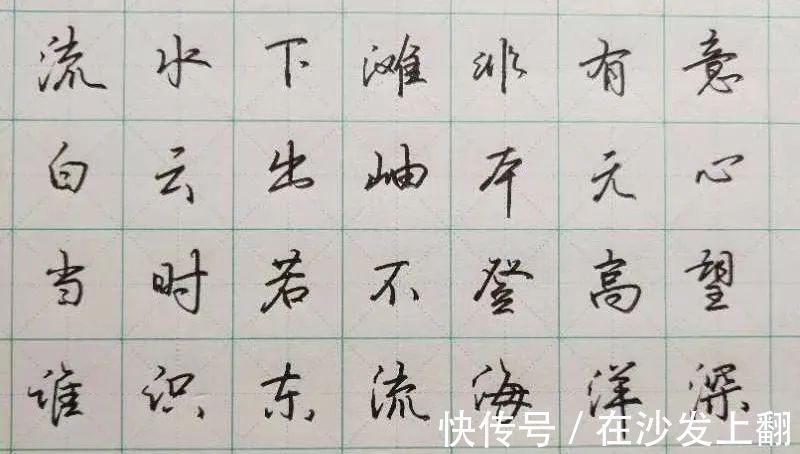 流水下滩非有意
白云出岫本无心
当时若不登高望
谁识东流海洋深
快传号 / 在沙发上翻